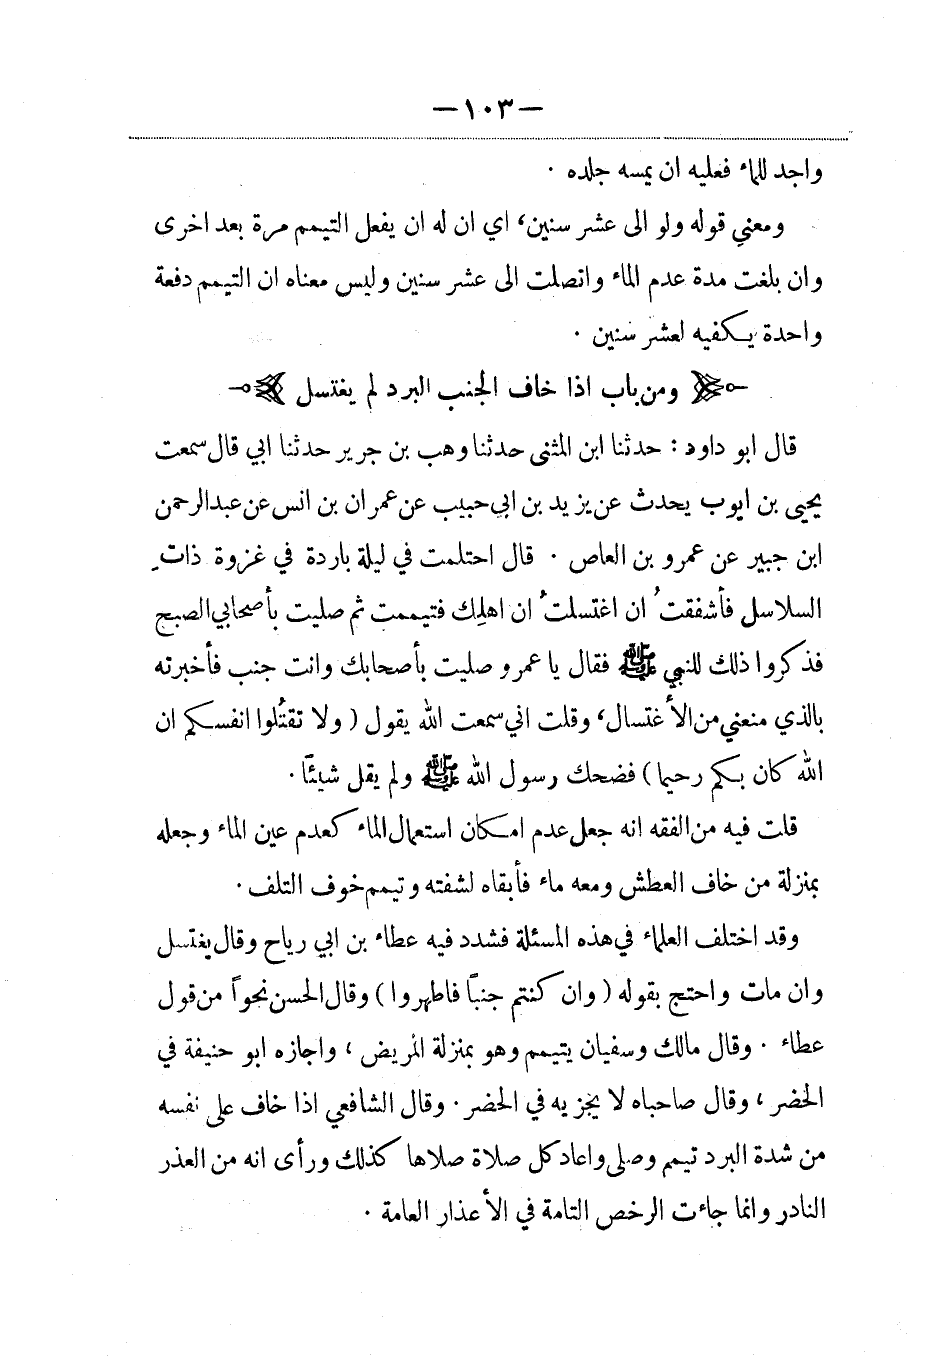 — ١٠٣ —
واجد للماء فعليه ان يمسه جلده ٠
ومعني قوله ولو الى عشر سنين، اي ان له ان يفعل التيمم مرة بعد اخرى
وان بلغت مدة عدم الماء واتصلت الى عشر سنين وليس معناه ان التيمم دفعة
واحدة يكفيه لعشر سنين ٠
ومن باب اذا خاف الجنب البرد لم يغتسل
قال ابو داود : حدثنا ابن المثنى حدثنا وهب بن جرير حدثنا ابي قال سمعت
يحيى بن ايوب يحدث عن يزيد بن ابي حبيب عن عمران بن انس عن عبدالرحمن
ابن جبير عن عمرو بن العاص ٠ قال احتلمت في ليلة باردة في غزوة ذات
السلاسل فأشفقتُ ان اغتسلتُ ان اهلِك فتيممت ثم صليت بأصحابي الصبح
فذكروا ذلك للنبي ﷺ فقال يا عمرو صليت بأصحابك وانت جنب فأخبرته
بالذي منعني من الأغتسال، وقلت اني سمعت الله يقول ( ولا تقتُلوا انفسكم ان
الله كان بكم رحيما ) فضحك رسول الله ﷺ ولم يقل شيئًا ٠
قلت فيه من الفقه انه جعل عدم امكان استعمال الماء كعدم عين الماء وجعله
بمنزلة من خاف العطش ومعه ماء فأبقاه لشفته وتيمم خوف التلف ٠
وقد اختلف العلماء في هذه المسئلة فشدد فيه عطاء بن ابي رياح وقال يغتسل
وان مات واحتج بقوله ( وان كنتم جنباً فاطهروا ) وقال الحسن نحواً من قول
عطاء ٠ وقال مالك وسفيان يتيمم وهو بمنزلة المريض ، واجازه ابو حنيفة في
الحضر ، وقال صاحباه لا يجزيه في الحضر ٠ وقال الشافعي اذا خاف على نفسه
من شدة البرد تيمم وصلى واعاد كل صلاة صلاها كذلك ورأى انه من العذر
النادر وانما جاءت الرخص التامة في الأعذار العامة ٠